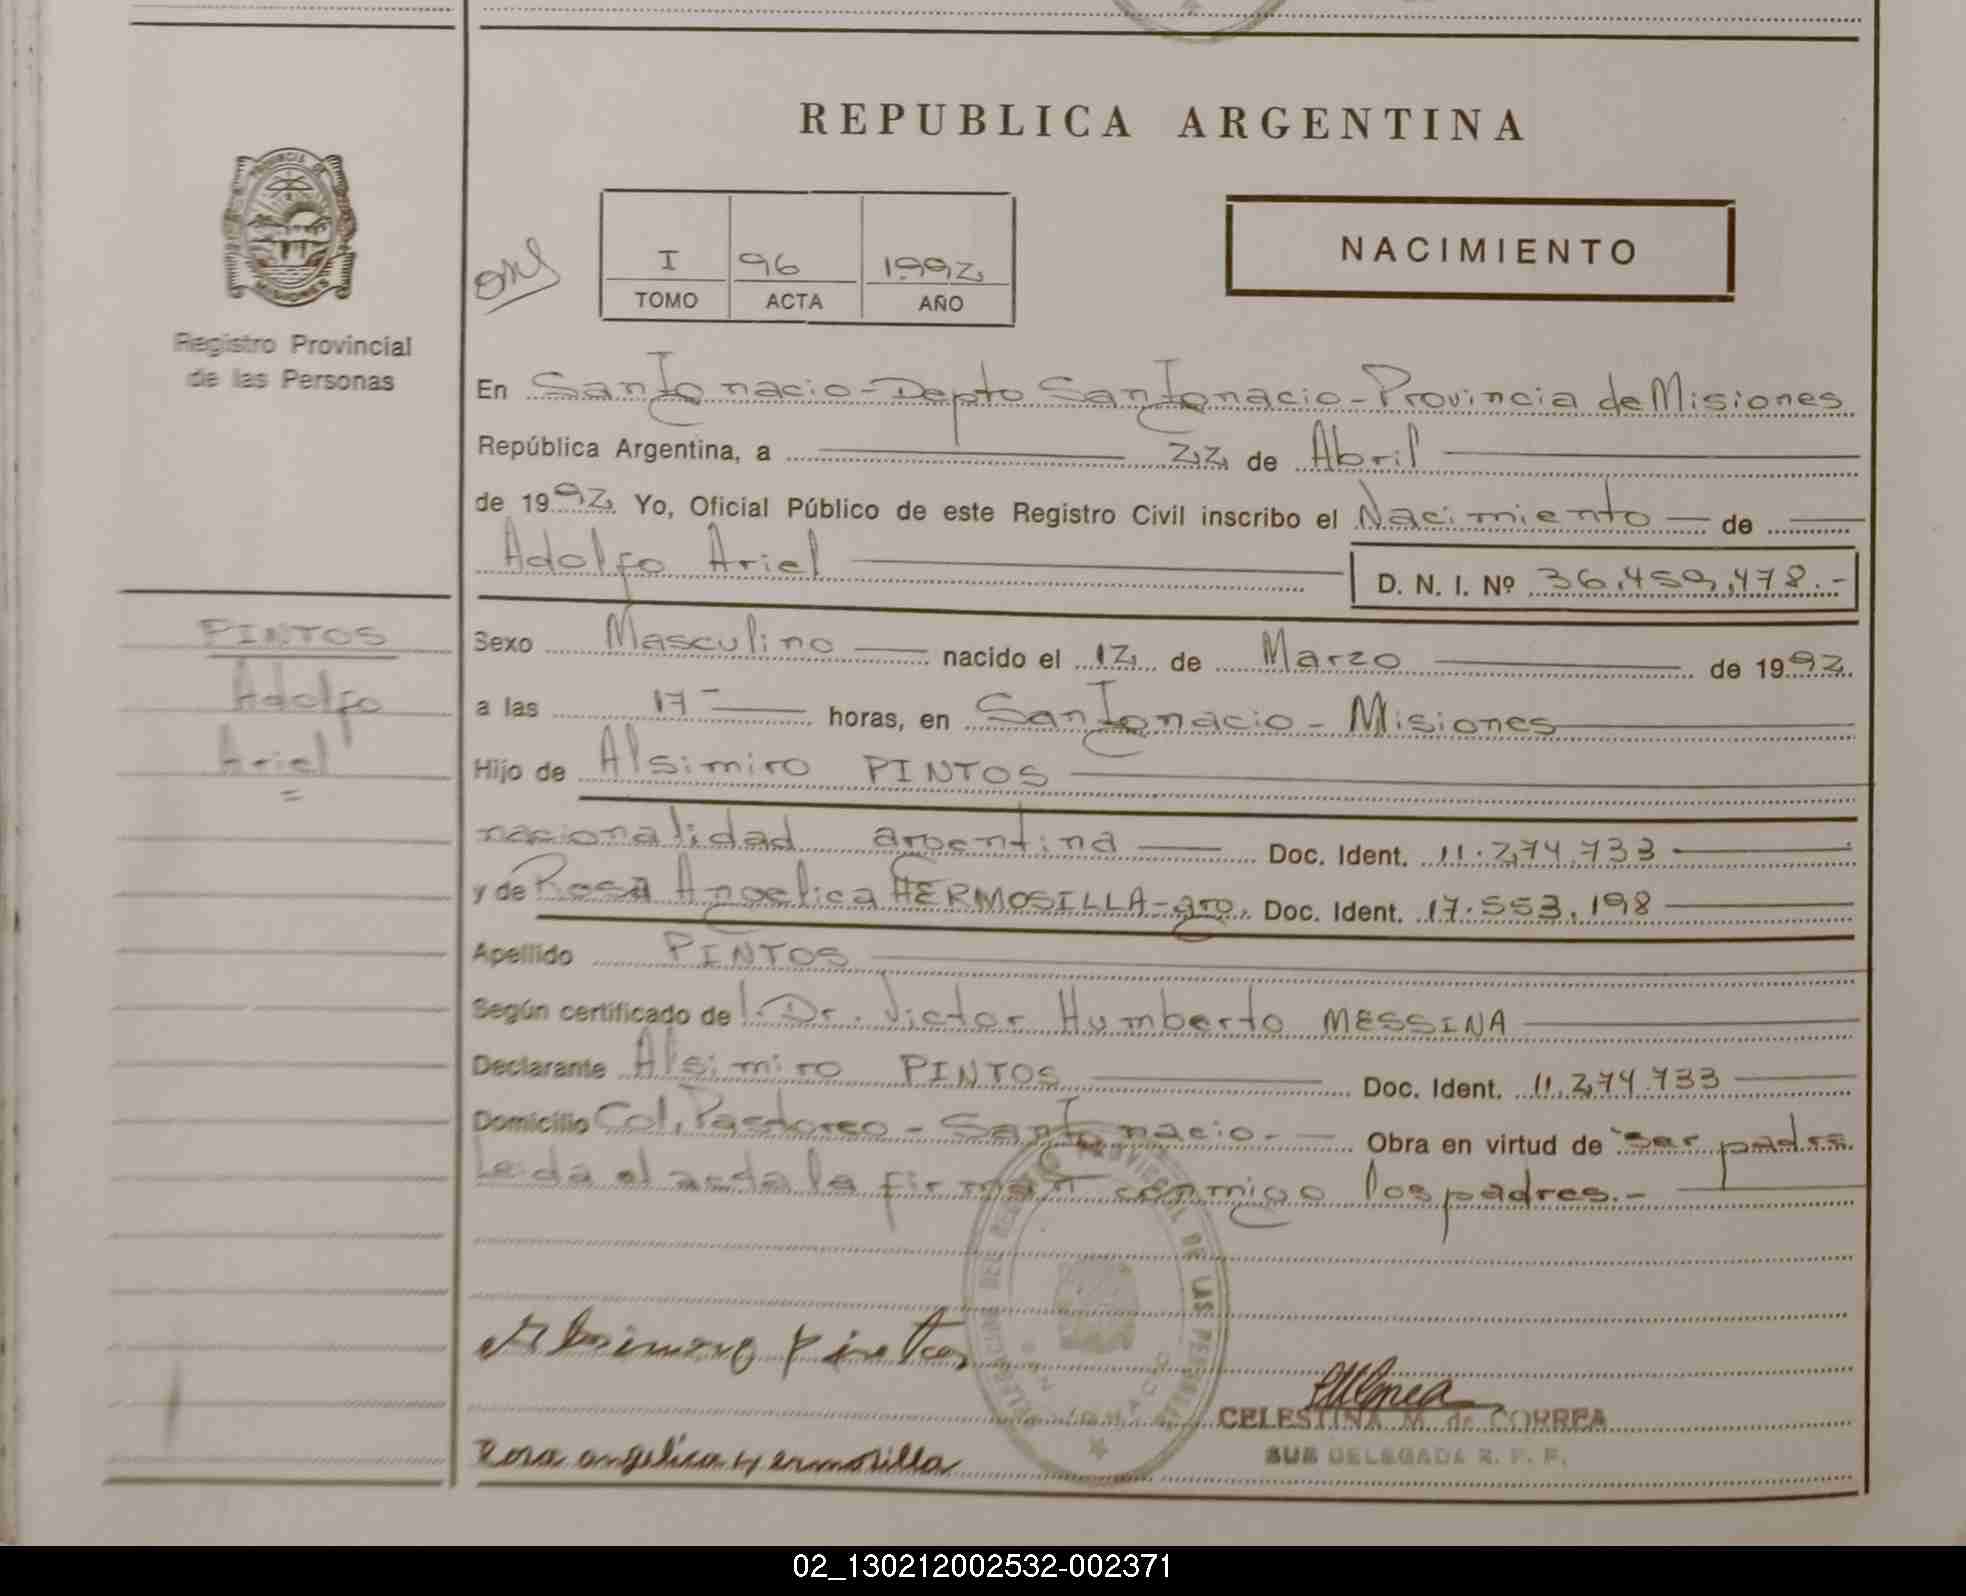 REPUBLICA ARGENTINA
PROVINCIA DE MISIONES
Registro Provincial
de las Personas
I 96 1992
TOMO ACTA AÑO
NACIMIENTO
En San Ignacio - Depto San Ignacio - Provincia de Misiones
República Argentina, a 22 de Abril
de 1992 Yo, Oficial Público de este Registro Civil inscribo el Nacimiento de
Adolfo Ariel D. N. I. Nº 36.459.478.-
PINTOS
Adolfo
Ariel
Sexo Masculino nacido el 12 de Marzo de 1992
a las 17 horas, en San Ignacio - Misiones
Hijo de Alsimiro PINTOS
nacionalidad argentina Doc. Ident. 11.274.733
y de Rosa Angelica HERMOSILLA - arg. Doc. Ident. 17.553.198
Apellido PINTOS
Según certificado de l. Dr. Victor Humberto MESSINA
Declarante Alsimiro PINTOS Doc. Ident. 11.274.733
Domicilio Col. Pastoreo - San Ignacio - Obra en virtud de ser padre
Leida el acta la firman conmigo los padres.-
DELEGACION DEL REGISTRO PROVINCIAL DE LAS PERSONAS
SAN IGNACIO
Alsimiro Pintos
CELESTINA M. de CORREA
SUB DELEGADA R. P. P.
Rosa angelica hermosilla
02_130212002532-002371